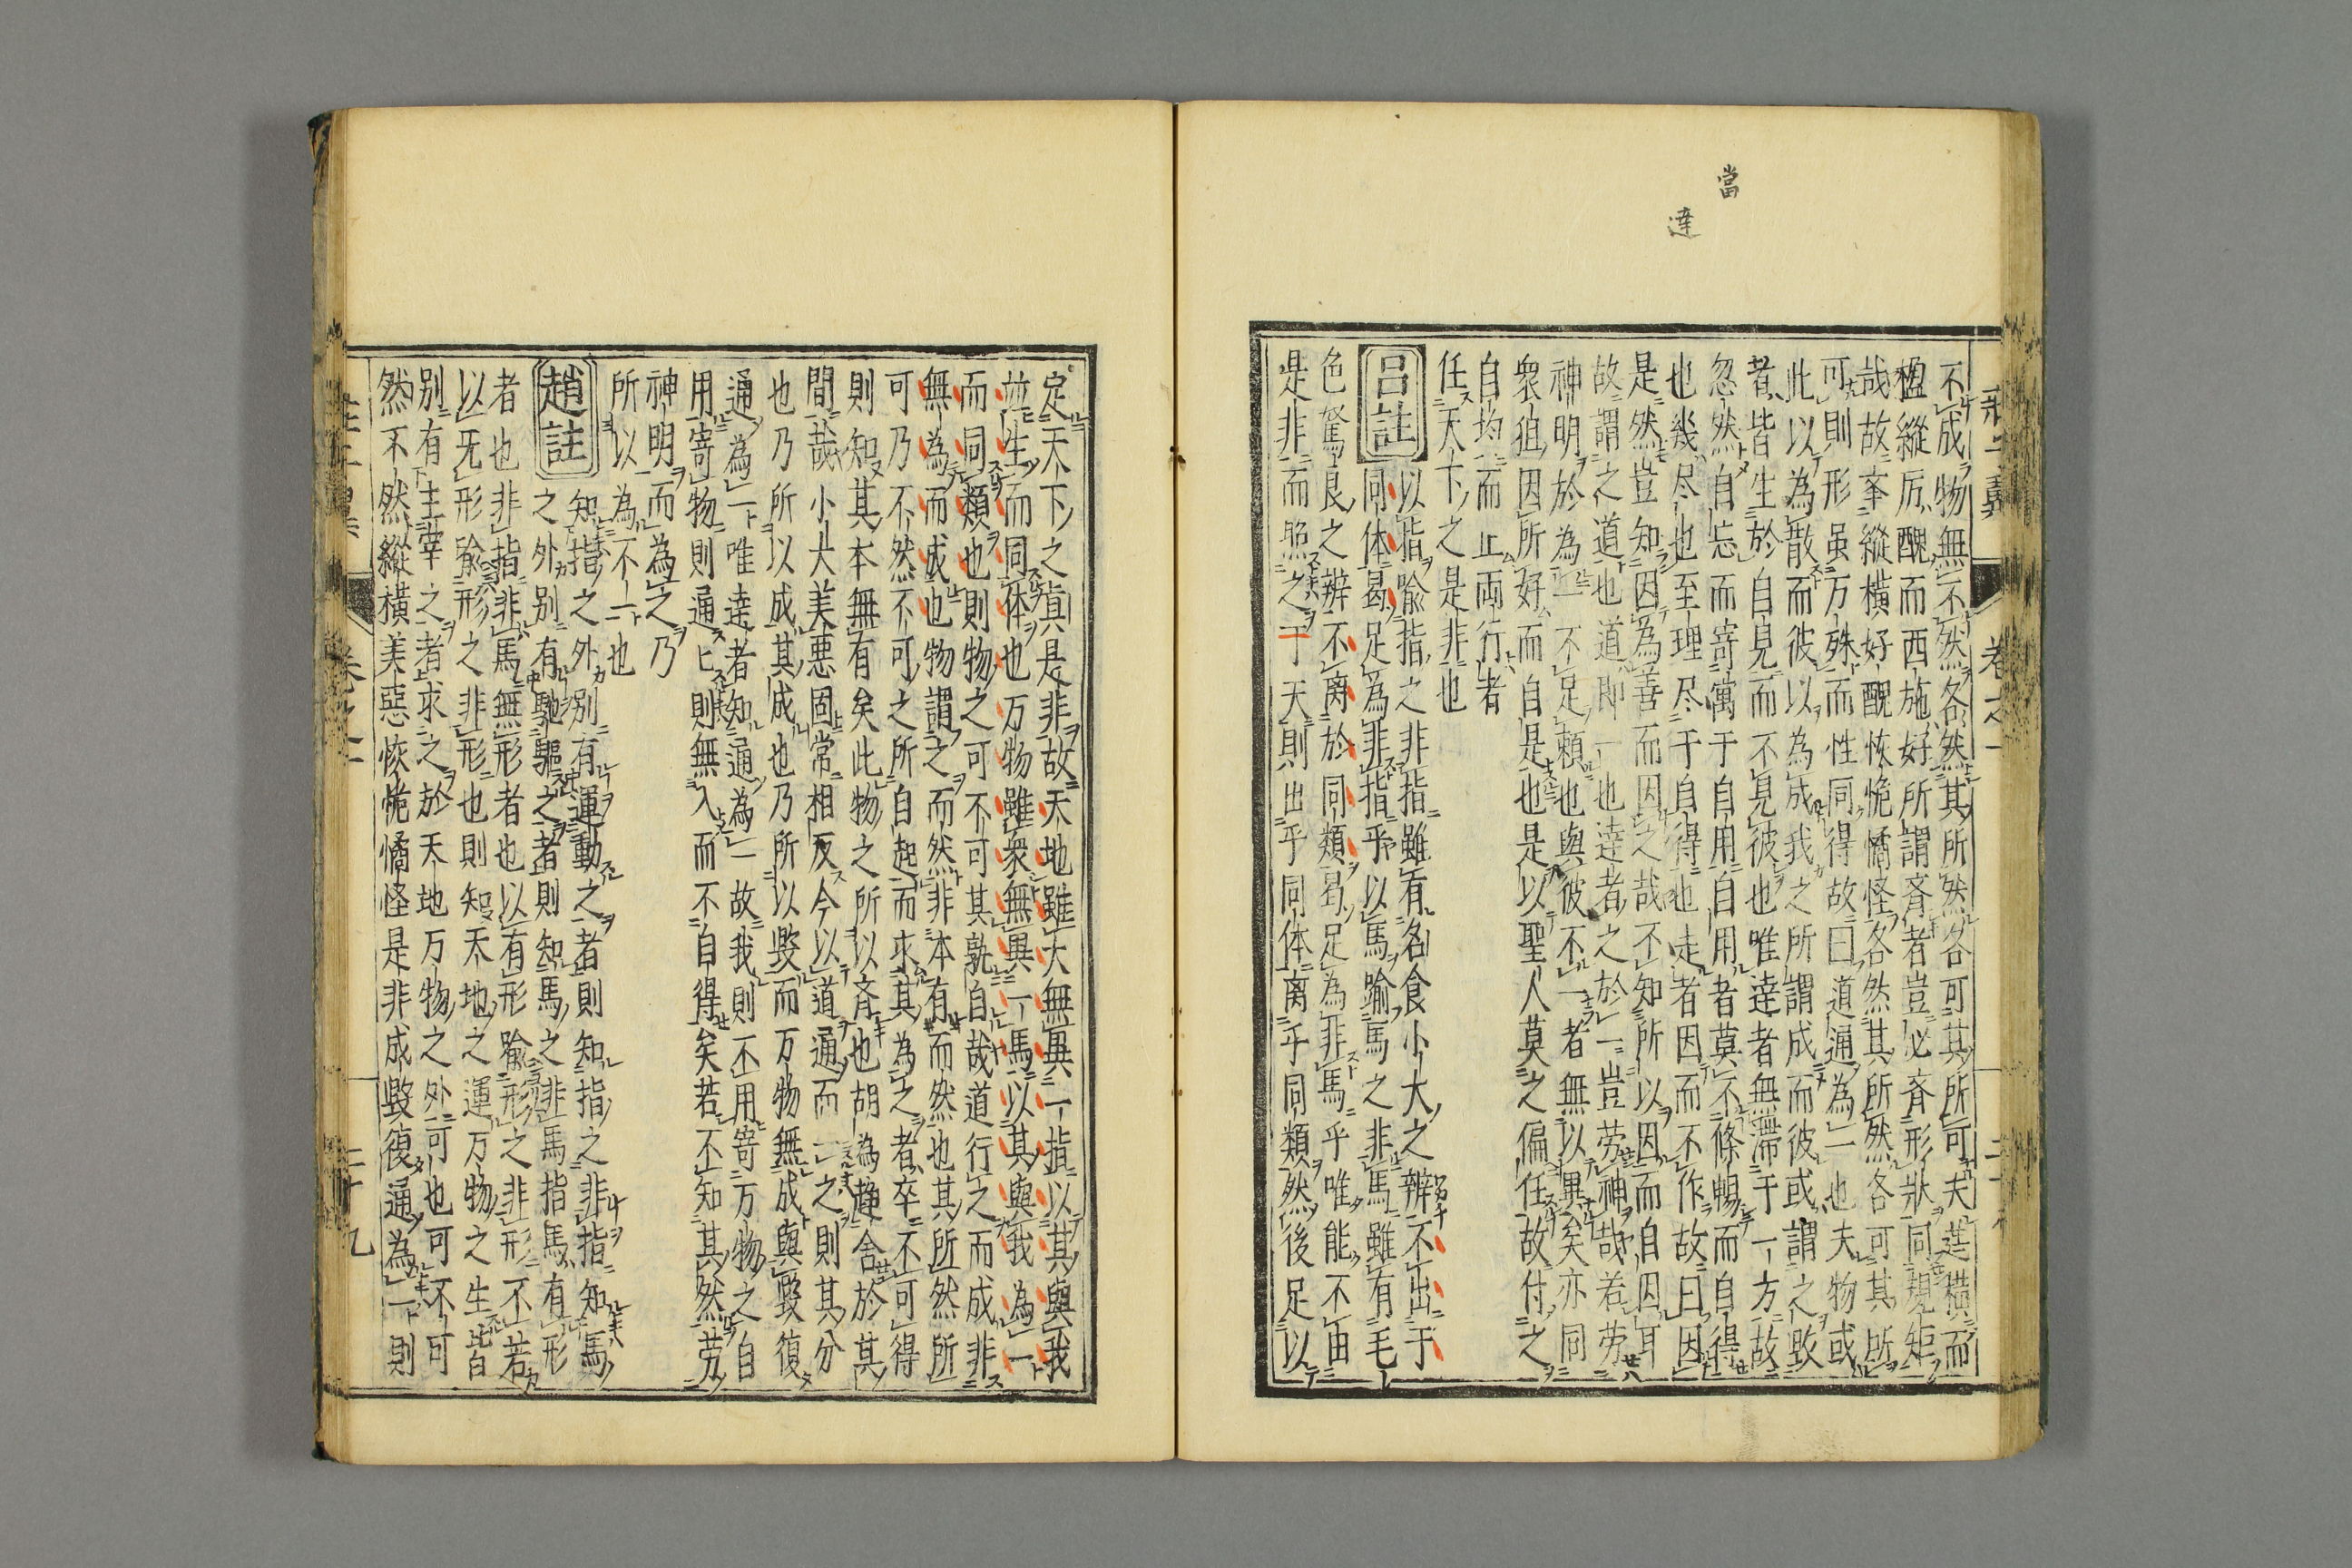 當
達
不成物無不然各然其所然各可其所可夫莛橫而
楹縱厉醜而西施好所謂斉者豈必斉形狀同規矩
哉故挙縱橫好醜恢恑憰怪各然其所然各可其所
可則形虽万殊而性同得故曰道通為一也夫物或
此以為散而彼以為成我之所謂成而彼或謂之毀
者皆生於自見而不見彼也唯達者無滞于一方故
忽然自忘而寄寓于自用自用者莫不條暢而自得
也幾尽也至理尽于自得也達者因而不作故曰因
是然豈知因為善而因之哉不知所以因而自因耳
故謂之道也道即一也達者之於一豈劳神哉若劳
神明於為一不足頼也與彼不一者無以異矣亦同
衆狙因所好而自是也是以聖人莫之偏任故付之
自均而止両行者
任天下之是非也
呂註
以指喩指之非指雖有名食小大之辨不出于
同体曷足為非指乎以馬踰馬之非馬雖有毛
色駑良之辨不离於同類曷足為非馬乎唯能不由
是非而照之于天則出乎同体离乎同類然後足以
定天下之真是非故天地雖大無異一指以其與我
並生而同体也万物雖衆無異一馬以其與我為一
而同類也則物之可不可其孰自哉道行之而成非
無為而成也物謂之而然非本有而然也其所然所
可乃不然不可之所自起而求其為之者卒不可得
則知其本無有矣此物之所以斉也胡為趣舍於其
間哉小大美悪固常相反今以道通而一之則其分
也乃所以成其成也乃所以毀而万物無成與毀復
通為一唯達者知通為一故我則不用寄万物之自
用寄物則通ヒ則無入而不自得矣若不知其然劳
神明而為之乃
所以為不一也
趙註
知指之外別有運動之者則知指之非指知馬
之外別有馳驅之者則知馬之非馬指馬有形
者也非指非馬無形者也以有形踰形之非形不若
以无形踰形之非形也則知天地之運万物之生皆
別有主宰之者求之於天地万物之外可也可不可
然不然縱橫美惡恢恑憰怪是非成毀復通為一則